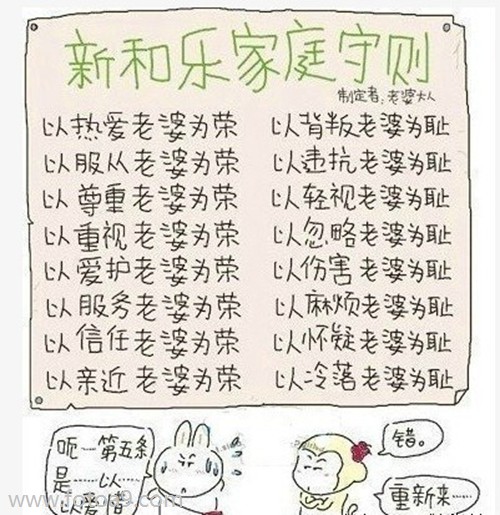 新和乐家庭守则
制定者:老婆大人
以热爱老婆为荣 以背叛老婆为耻
以服从老婆为荣 以违抗老婆为耻
以尊重老婆为荣 以轻视老婆为耻
以重视老婆为荣 以忽略老婆为耻
以爱护老婆为荣 以伤害老婆为耻
以服务老婆为荣 以麻烦老婆为耻
以信任老婆为荣 以怀疑老婆为耻
以亲近老婆为荣 以冷落老婆为耻
呃……第五条
是……以……
以爱
错。
重新来…